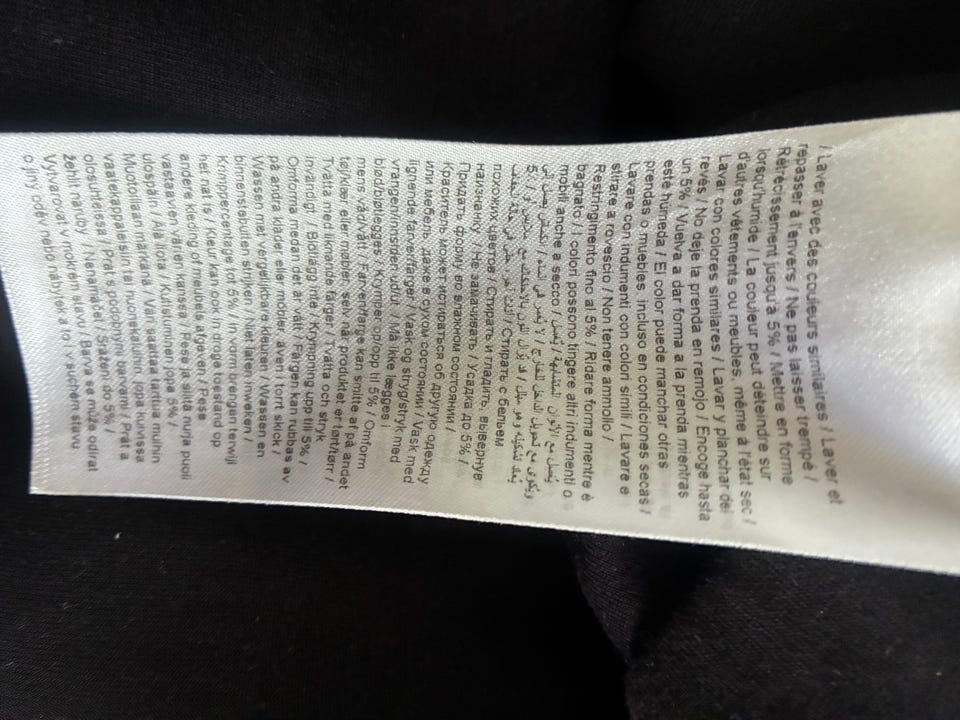 / Laver avec des couleurs similaires / Laver et
repasser à l'envers / Ne pas laisser trempé /
Rétrécissement jusqu'à 5% / Mettre en forme
lorsqu'humide / La couleur peut déteindre sur
d'autres vêtements ou meubles, même à l'état sec /
Lavar con colores similares / Lavar y planchar del
revés / No deje la prenda en remojo / Encoge hasta
un 5% / Vuelva a dar forma a la prenda mientras
esté húmeda / El color puede manchar otras
prendas o muebles, incluso en condiciones secas /
Lavare con indumenti con colori simili / Lavare e
stirare a rovescio / Non tenere ammollo /
Restringimento fino al 5% / Ridare forma mentre è
bagnato / I colori possono tingere altri indumenti o
mobili anche a secco /
5% /
/ Стирать с бельем
похожих цветов. Стирать и гладить, вывернув
наизнанку. / Не замачивать / Усадка до 5% /
Придать форму во влажном состоянии /
Краситель может истираться об другую одежду
или мебель, даже в сухом состоянии / Vask med
lignende farver/farger / Vask og stryg/stryk med
vrangen/innsiden ud/ut / Må ikke lægges i
blød/bløtlegges / Krymper op/opp til 5% / Omform
mens våd/våt / Farve/farge kan smitte af på andet
tøj/klær eller møbler, selv når produktet er tørt/tørr /
Tvätta med liknande färger / Tvätta och stryk
invändigt / Blötlägg inte / Krympning upp till 5% /
Omforma medan de är våt / Färgen kan rubbas av
på andra kläder eller möbler, även i torrt skick /
Wassen met vergelijkbare kleuren / Wassen en
binnenstebuiten strijken / Niet laten inweken /
Krimppercentage tot 5% / In vorm brengen terwijl
het nat is / Kleur kan ook in droge toestand op
andere kleding of meubels afgeven / Pese
vastaavien värien kanssa / Pese ja silitä nurja puoli
ulospäin / Älä liota / Kutistuminen jopa 5% /
Muotoillaan märkänä / Väri saattaa tarttua muihin
vaatekappaleisiin tai huonekaluihin, jopa kuivissa
olosuhteissa / Prát s podobnými barvami / Prát a
žehlit naruby / Nenamáčet / Srážení do 5% /
Vytvarovat v mokrém stavu / Barva se může odírat
o jiný oděv nebo nábytek a to i v suchém stavu